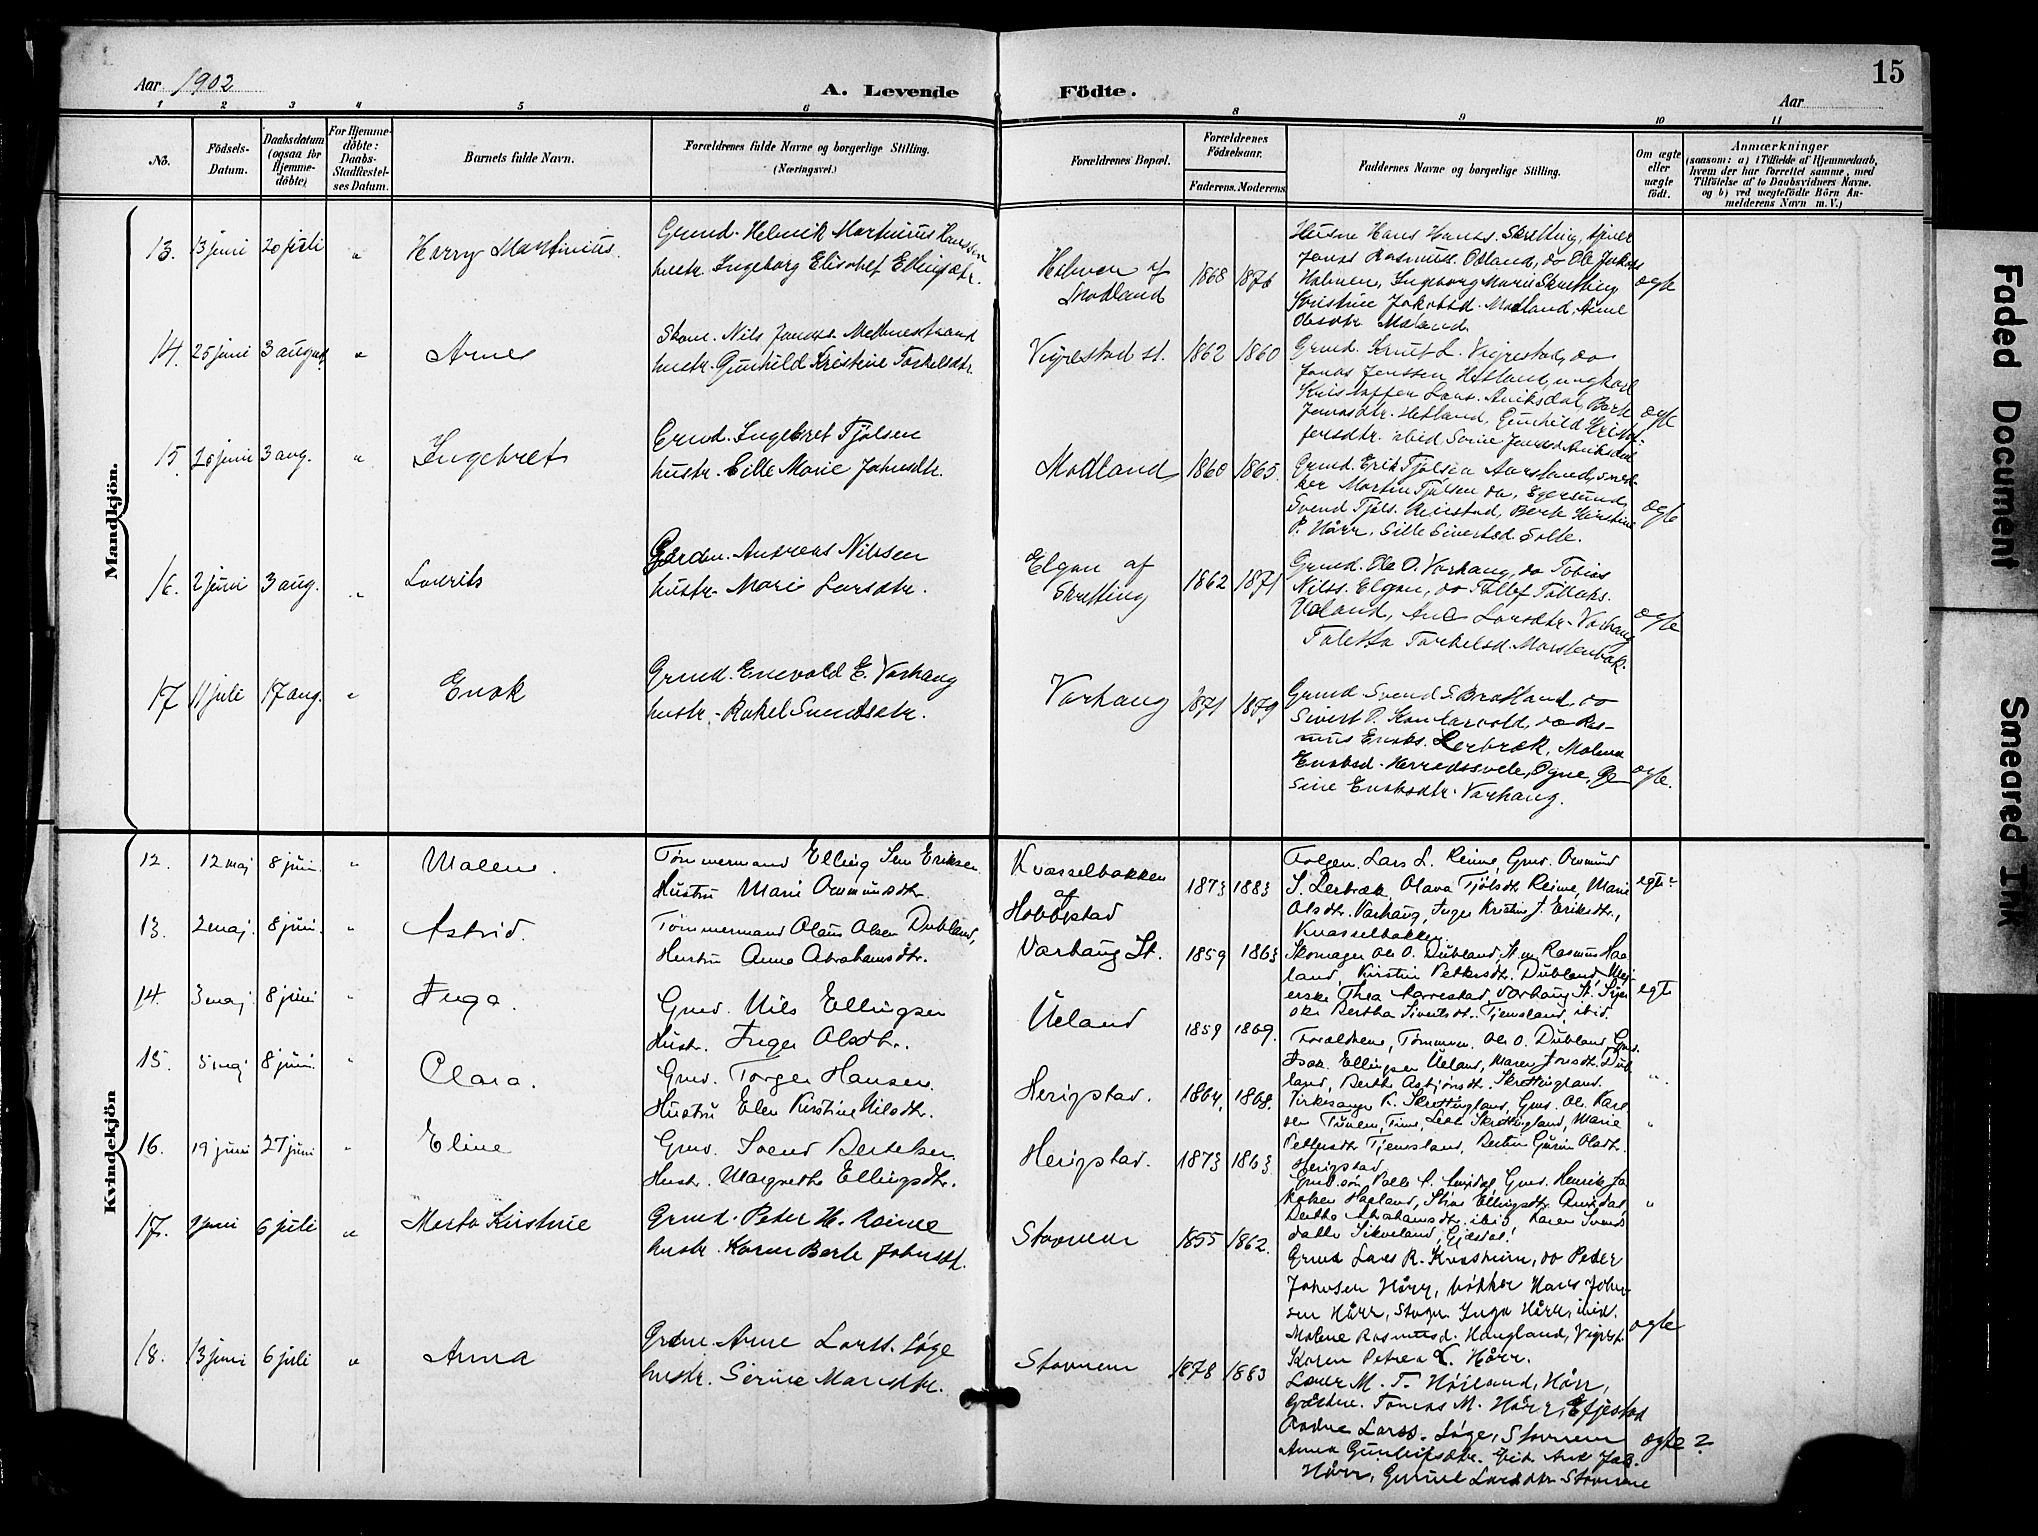 15
Aar 1902
A. Levende Födte.
Aar
1 2 3 4 5 6 8 9 10 11
No.
Födsels-Datum.
Daabsdatum (ogsaa for Hjemme-döbte)
For Hjemme-döbte: Daabs-Stadfæstel-ses Datum.
Barnets fulde Navn.
Forældrenes fulde Navne og borgerlige Stilling.
(Næringsvei.)
Forældrenes Bopæl.
Forældrenes Födselsaar.
Faderens. Moderens.
Faddernes Navne og borgerlige Stilling.
Om ægte eller uægte födt.
Anmærkninger
(saasom: a) i Tilfælde af Hjemmedaab,
hvem der har forrettet samme, med
Tilföielse af to Daabsvidners Navne.
og b) ved uægtefödte Börn An-
melderens Navn m. V.)
Mandkjön.
13. 13 juni 20 juli " Harry Martinius.
Grmd. Helmik Martinius Hanssen
hustr. Ingeborg Elisabet Ellingsdtr.
Holmen af
Modland
1868 1876
Jonas Rasmus. Ødland, do Ole Jakobs
Holmen, Ingeborg Marie Skretting
Kristine Jakobsd. Modland, Anne
ægte
14. 25 juni 3 august "
Arne
Nils Jonass.
hustr. Gunhild Kristine Torkelsdtr.
Vigrestad st. 1862 1860
Grmd. Knut L. Vigrestad, do
Jonas Jenssen Hetland, ungkarl
Kristoffer Lars. Aniksdal, Berte
Jonasdtr. Hetland, Gunhild Kristof-
fersdtr. ibid
ægte
15 20 juni 3 aug. " Ingebret
Grmd. Ingebret Tjølsen
hustr. Cille Marie Johnsdtr.
Modland 1860 1865.
Grmd. Erik Tjølsen Aarstad, sned-
ker Martin Tjølsen do, Egersund,
Svend Tjøls. Reiestad, Berte Kirstine
P. Hårr, Sille Sivertsd.
ægte
16. 2 juni 3 aug. " Laurits
Gårdm. Andreas Nilssen
hustr. Mari Larsdtr.
Elgan af
Skretting
1862 1871
Grmd. Ole O. Varhaug, do Tobias
Nilss. Elgan, do Tollef Tollaks.
Ueland, Ane Larsdtr. Varhaug
Taletta Torkelsd.
ægte
17 11 juli 17 aug. " Enok
Grmd. Enevold E. Varhaug
hustr. Rakel Svendsdtr.
Varhaug 1871 1879
Grmd. Svend S. Bratland, do
Sivert P.
do Ras-
mus Enoks. Lerbræk, Malena
Enoksd. Ogne, Ge-
sine Enoksdtr. Varhaug.
ægte.
Kvindekjön
12. 12 maj 8 juni "
Malene.
Tømmermand Elling Sem Eriksen
Hustru Marie Ommundsdtr.
Kvasselbakken
af
Hobbestad
1873 1883
Lars L. Reime, Gmd. Ommund
S. Lerbræk, Olava Tjølsdtr. Reime, Marie
Olsdtr. Varhaug, Inger Kristine J. Eriksdtr.,
Kvasselbakken
egte
13. 2 maj. 8 juni. " Astrid.
Tømmermand Olaus Olsen Dubland,
Hustru Anna Abrahamsdtr.
Varhaug St. 1859 1863
Skomager Ole O. Dubland, St.m. Rasmus Haa-
land, Kirstin Pettersdt. Dubland, Meje-
erske Thea Varhaug St.
Bertha Sivertsdt. Tjemsland, ibid.
egte
14. 3 maj. 8 juni " Inga.
Gmd. Nils Ellingsen
Hustr. Inger Olsdtr.
Ueland 1859 1869.
Forældrene, Tømmerm. Ole O. Dubland, Gmd.
Isak Ellingsen Ueland, Maren Jonsdt. Dub-
land, Berthe Asbjørnsdt. Skrettingland.
"
15. 5 maj 8 juni. " Clara.
Gmd. Torger Hansen.
Hustru Elen Kirstine Nilsdtr.
Herigstad. 1864, 1868.
Kirkesanger K. Skrettingland, Gmd. Ole Karl-
sen Time, Lea Skrettingland, Marie
Pettersdt. Tjemsland, Bertin Gurine Olsdt.
Herigstad
"
16. 19 juni 27 juni " Eline
Gmd. Svend Bertelsen
Hustr. Margrethe Ellingsdtr.
Herigstad. 1873 1863
Gmd. Henrik Ja-
kobsen Haaland, Stine Ellingsdtr.
Berthe Abrahamsdtr. ibid, Karen Svends-
datter Sikveland, Gjesdal.
"
17. juni 6 juli " Merta Kirstine
Grmd. Peter H. Reime
hustr. Karen Berte Johnsdt.
Stavnem 1855 1862.
Grmd Lars R. Kvasheim, do Peder
Johnsen Hårr, bøkker Hans John-
sen Hårr, Inga Hårr, ibid.
Malene Rasmusd. Haugland, Vigrest.
Karen Petrea L. Hårr.
ægte
18. 13 juni 6 juli " Anna
Arne Larss. Søge
hustr. Serine
Stavnem 1878 1883
M. T. Høiland, Hårr,
Tomas M. Hårr,
Larss. Søge, Stavnem
Anna
Hårr, Gurine Larsdtr Stavnem
ægte ?
Faded Document
Smeared Ink